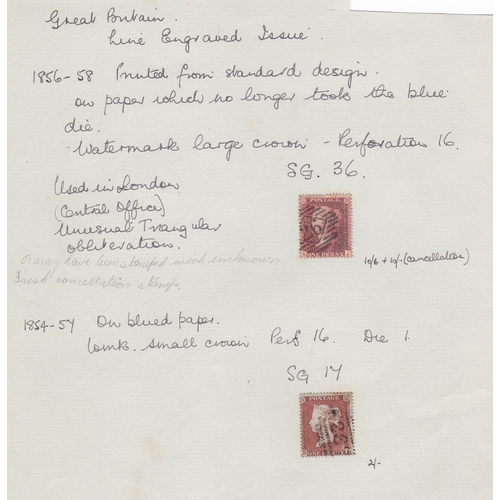 Great Britain.
Line Engraved Issue.
1856-58 Printed from standard design.
on paper which no longer took the blue
die.
Watermark large crown - Perforation 16.
SG. 36.
Used in London
(Central Office)
Unusual Triangular
obliteration.
or may have been stamped with unknown
Irish cancellation stamp.
POSTAGE
ONE PENNY
10/6 + 10/- (cancellation)
1854-57 On blued paper.
Wmk. small crown Perf 16. Die 1.
SG 17
POSTAGE
2/-